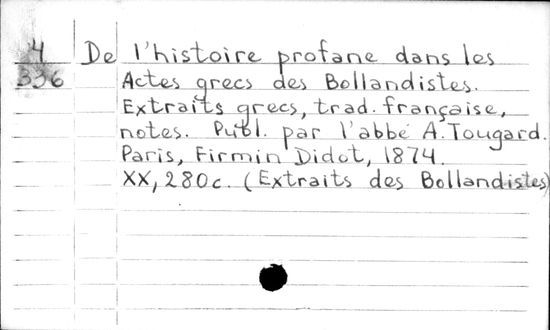 4 De l'histoire profane dans les
336 Actes grecs des Bollandistes.
Extraits grecs, trad. française,
notes. Publ. par l'abbé A. Tougard.
Paris, Firmin Didot, 1874.
XX, 280c. (Extraits des Bollandistes)